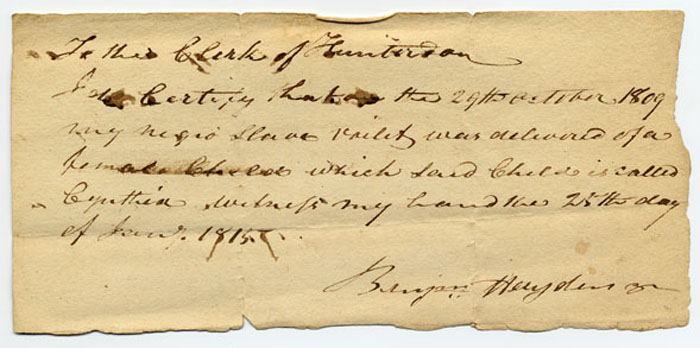 To the Clerk of Hunterdon
I do Certify that on the 29th October 1809
my negro Slave Voilet was delivered of a
female Child which said Child is called
Cynthia witness my hand the 25th day
of Jany. 1815
Benjn. Hayden